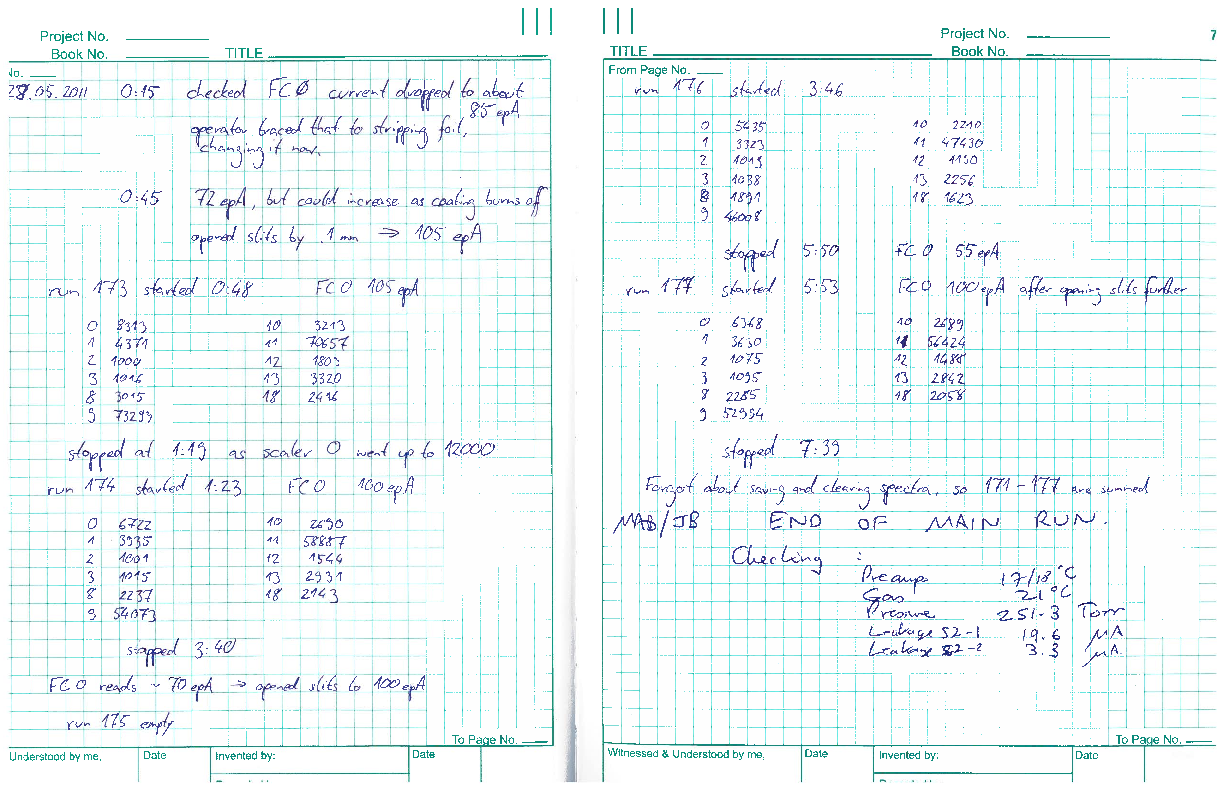 Project No.
Book No.
TITLE
No.
28.05.2011 0:15 checked FCØ current dropped to about
85 epA
operator traced that to stripping foil,
changing it now.
0:45 72 epA, but could increase as coating burns off
opened slits by .1 mm ⇒ 105 epA
run 173 started 0:48 FCO 105 epA
0 8313 10 3213
1 4371 11 70657
2 1000 12 1803
3 1016 13 3320
8 3015 18 2416
9 73293
stopped at 1:19 as scaler 0 went up to 12000
run 174 started 1:23 FCO 100 epA
0 6722 10 2690
1 3935 11 58887
2 1001 12 1544
3 1015 13 2931
8 2237 18 2143
9 54073
stopped 3:40
FCO reads ~ 70 epA → opened slits to 100 epA
run 175 empty
To Page No.
Understood by me, Date Invented by: Date
Project No.
7
TITLE Book No.
From Page No.
run 176 started 3:46
0 5435 10 2210
1 3323 11 47430
2 1019 12 1130
3 1038 13 2256
8 1891 18 1623
9 46008
stopped 5:50 FCO 55 epA
run 177 started 5:53 FCO 100 epA after opening slits further
0 6368 10 2689
1 3630 11 56424
2 1075 12 1488
3 1095 13 2842
8 2285 18 2058
9 52994
stopped 7:39
Forgot about saving and clearing spectra, so 171-177 are summed
MAB/JB END OF MAIN RUN.
Checking :
Preamp 17/18 °C
Gas 21 °C
Pressure 251.3 Torr
Leakage S2-1 19.6 μA
Leakage S2-2 3.3 μA.
To Page No.
Witnessed & Understood by me, Date Invented by: Date